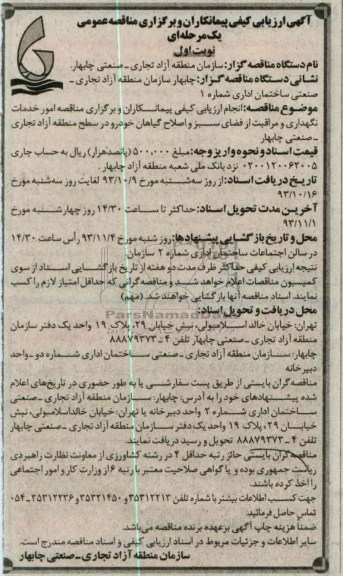 آگهی ارزیابی کیفی پیمانکاران و برگزاری مناقصه عمومی
یک مرحله‌ای
نوبت اول
نام دستگاه مناقصه گزار: سازمان منطقه آزاد تجاری ـ صنعتی چابهار.
نشانی دستگاه مناقصه گزار: چابهار سازمان منطقه آزاد تجاری ـ
صنعتی ساختمان اداری شماره ۱
موضوع مناقصه: انجام ارزیابی کیفی پیمانکاران و برگزاری مناقصه امور خدمات
نگهداری و مراقبت از فضای سبز و اصلاح گیاهان خودرو در سطح منطقه آزاد تجاری
ـ صنعتی چابهار
قیمت اسناد و نحوه واریز وجه: مبلغ ۵۰۰,۰۰۰ (پانصدهزار) ریال به حساب جاری
۰۲۰۰۱۲۰۰۶۲۰۰۵ نزد بانک ملی شعبه منطقه آزاد چابهار.
تاریخ دریافت اسناد: از روز سه‌شنبه مورخ ۹۳/۱۰/۹ لغایت روز سه‌شنبه مورخ
۹۳/۱۰/۱۶
آخرین مدت تحویل اسناد: حداکثر تا ساعت ۱۴/۳۰ روز چهارشنبه مورخ
۹۳/۱۱/۱
محل و تاریخ بازگشایی پیشنهادها: روز شنبه مورخ ۹۳/۱۱/۴ رأس ساعت ۱۴/۳۰
در سالن اجتماعات ساختمان اداری شماره ۲ سازمان.
نتیجه ارزیابی کیفی حداکثر ظرف مدت دو هفته از تاریخ بازگشایی اسناد از سوی
کمیسیون مناقصات اعلام خواهد شد و مناقصه گرانی که حداقل امتیاز لازم را کسب
نمایند اسناد مناقصه آنها بازگشایی خواهند شد. (مهم)
محل دریافت و تحویل اسناد:
تهران: خیابان خالد اسلامبولی، نبش خیابان ۲۹، پلاک ۱۹ واحد یک دفتر سازمان
منطقه آزاد تجاری ـ صنعتی چابهار تلفن ۴ ـ ۸۸۸۷۹۳۷۳
چابهار: سازمان منطقه آزاد تجاری ـ صنعتی ساختمان اداری شماره دو ـ واحد
دبیرخانه
مناقصه گران بایستی از طریق پست سفارشی یا به طور حضوری در تاریخ‌های اعلام
شده پیشنهادهای خود را به آدرس: چابهار: سازمان منطقه آزاد تجاری ـ صنعتی
ساختمان اداری شماره ۲ واحد دبیرخانه یا تهران: خیابان خالد اسلامبولی، نبش
خیابان ۲۹، پلاک ۱۹ واحد یک دفتر سازمان منطقه آزاد تجاری ـ صنعتی چابهار
تلفن ۴ ـ ۸۸۸۷۹۳۷۳ تحویل و رسید دریافت نمایند.
مناقصه گران بایستی حائز رتبه حداقل ۴ در رشته کشاورزی از معاونت نظارت راهبردی
ریاست جمهوری بوده و یا گواهی صلاحیت معتبر با رتبه ۶ از وزارت کار و امور اجتماعی
را اخذ کرده باشند.
جهت کسب اطلاعات بیشتر با شماره تلفن ۳۵۳۱۲۲۱۳ و ۳۵۳۲۱۴۵۰ و ۳۵۳۱۲۲۳۶ ـ ۰۵۴
تماس حاصل فرمائید.
ضمناً هزینه چاپ آگهی برعهده برنده مناقصه می‌باشد.
سایر اطلاعات و جزئیات مربوط در اسناد ارزیابی کیفی و اسناد مناقصه مندرج است.
سازمان منطقه آزاد تجاری ـ صنعتی چابهار